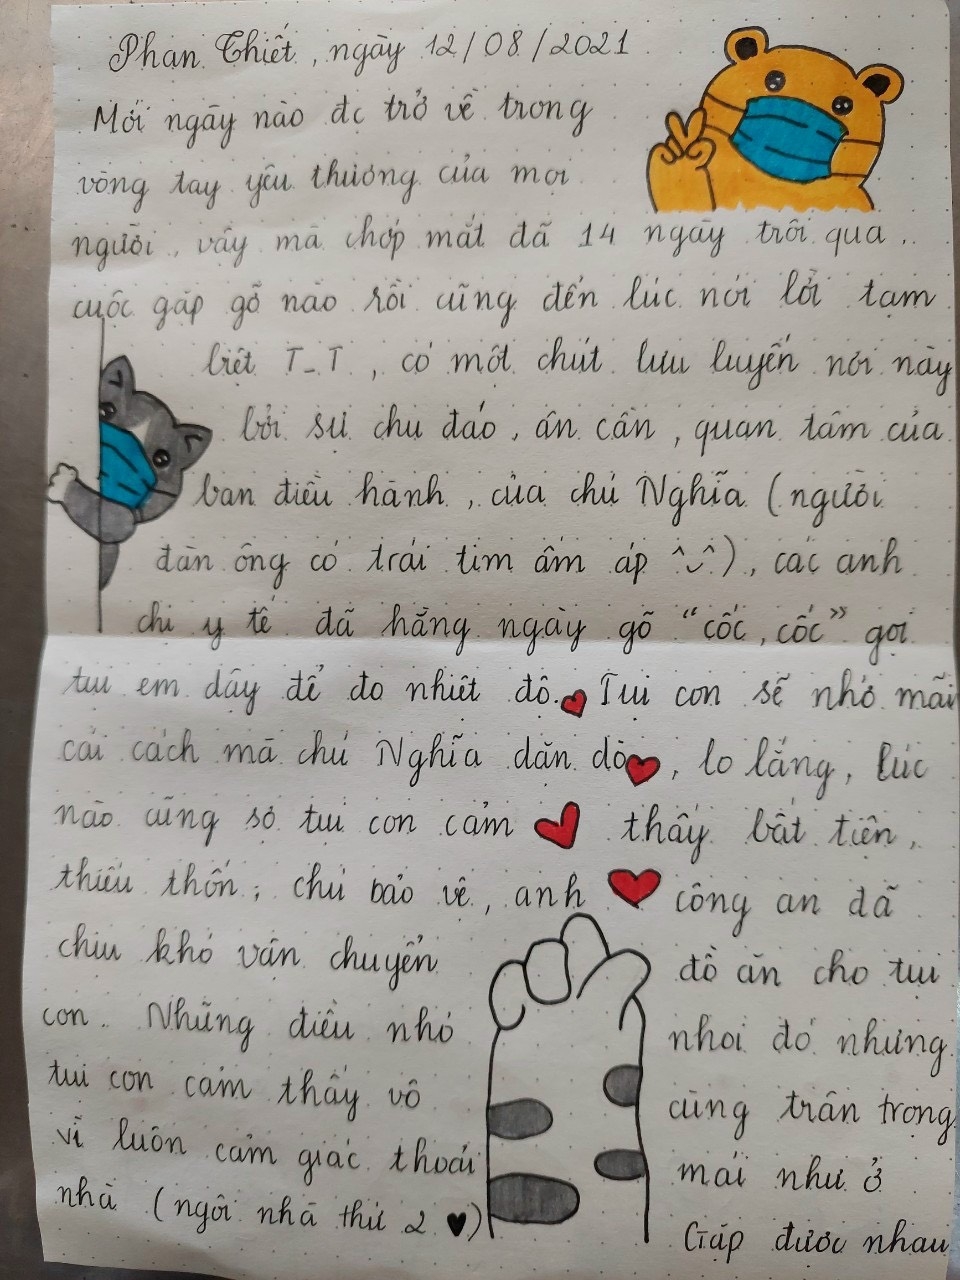 Phan Thiết, ngày 12/08/2021
Mới ngày nào đc trở về trong
vòng tay yêu thương của mọi
người, vậy mà chớp mắt đã 14 ngày trôi qua..
cuộc gặp gỡ nào rồi cũng đến lúc nói lời tạm
biệt T_T, có một chút lưu luyến nơi này
bởi sự chu đáo, ân cần, quan tâm của
ban điều hành, của chú Nghĩa (người
đàn ông có trái tim ấm áp ^⌣^), các anh
chị y tế đã hằng ngày gõ "cốc, cốc" gọi
tụi em dậy để đo nhiệt độ. Tụi con sẽ nhớ mãi
cái cách mà chú Nghĩa dặn dò, lo lắng, lúc
nào cũng sợ tụi con cảm thấy bất tiện,
thiếu thốn; chú bảo vệ, anh công an đã
chịu khó vận chuyển đồ ăn cho tụi
con. Những điều nhỏ nhoi đó nhưng
tụi con cảm thấy vô cùng trân trọng
vì luôn cảm giác thoải mái như ở
nhà (ngôi nhà thứ 2 ♥)
Gặp được nhau